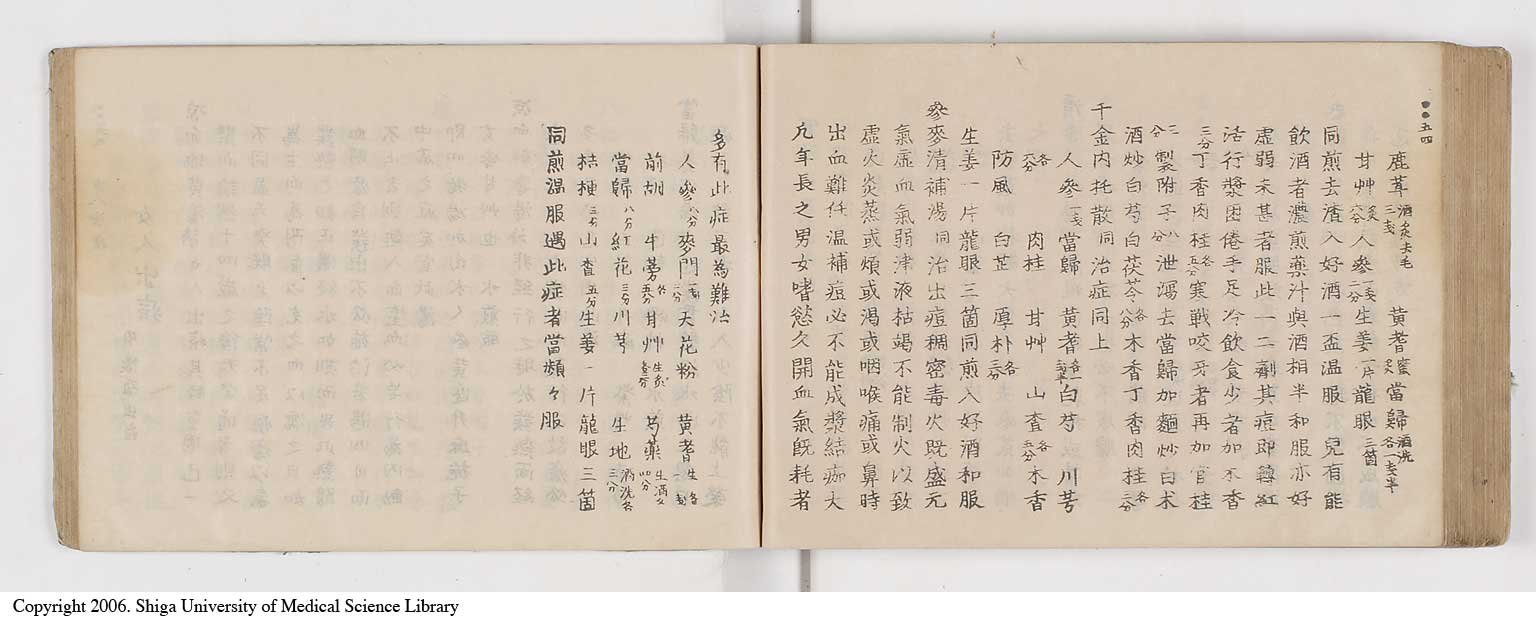 ●●五四
鹿茸酒炙去毛三戔 黄耆蜜炙當歸酒洗各一戔半
甘艸炙六分人參一戔二分生姜一片龍眼三箇
同煎去渣入好酒一盃温服〇兒有能
飲酒者濃煎藥汁與酒相半和服亦好
虚弱未甚者服此一二劑其痘即轉紅
活行漿困倦手足冷飲食少者加木香
三分丁香肉桂各五分寒戰咬牙者再加官桂
三分製附子八分泄瀉去當歸加麵炒白术
酒炒白芍白茯苓各八分木香丁香肉桂各三分
千金内托散同治症同上
人參一戔當歸 黄耆各一戔半白芍 川芎
各六分 肉桂 甘艸 山査各五分木香
防風 白芷 厚朴各三分
生姜一片龍眼三箇同煎入好酒和服
參麥清補湯同治出痘稠密毒火既盛元
氣虚血氣弱津液枯竭不能制火以致
虚火炎蒸或煩或渇或咽喉痛或鼻時
出血難任温補痘必不能成漿結痂大
凡年長之男女嗜慾久開血氣既耗者
多有此症最為難治
人參八分麥門一戔二分天花粉 黄耆生各
前胡 牛蒡各五分甘艸生炙 芍藥生酒
當歸八分紅花三分川芎 生地酒洗各三分
桔梗三分山査五分生姜一片龍眼三箇
同煎温服遇此症者當頻々服
Copyright 2006. Shiga University of Medical Science Library